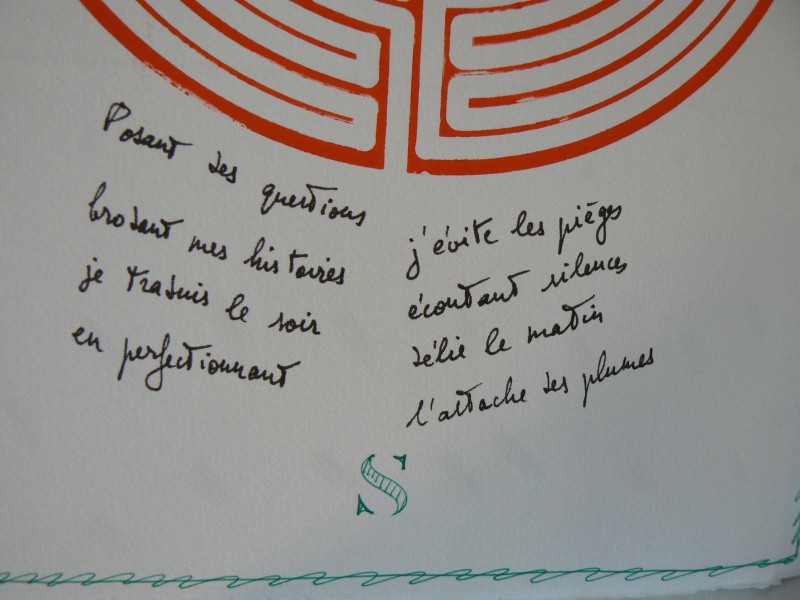 Posant des questions
brodant mes histoires
je traduis le soir
en perfectionnant
j'évite les pièges
écoutant silences
délie le matin
l'attache des plumes
S